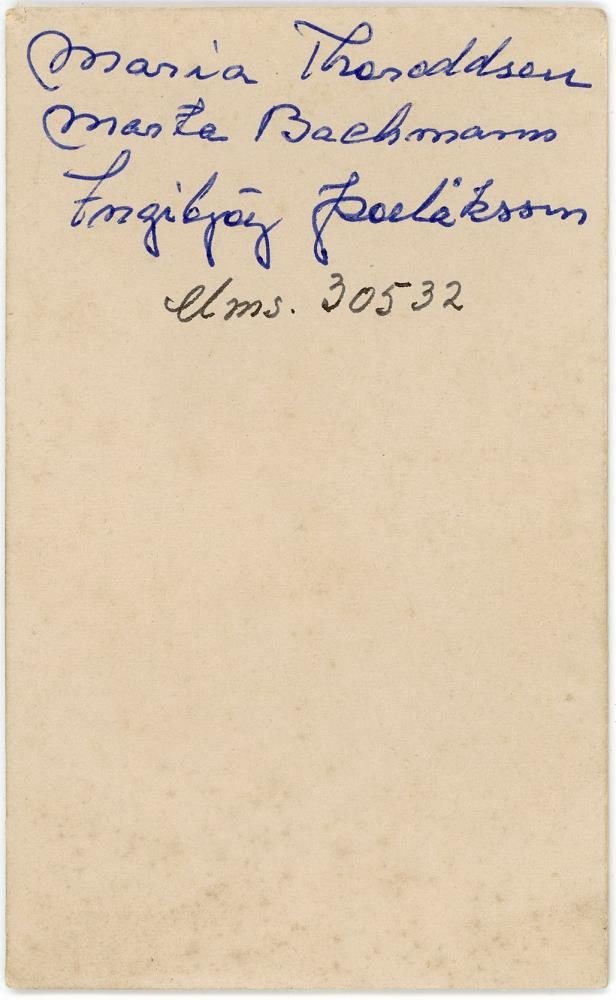 Maria Thoroddsen
Marta Bachmann
Ingibjörg Ísaksson
Mms. 30532